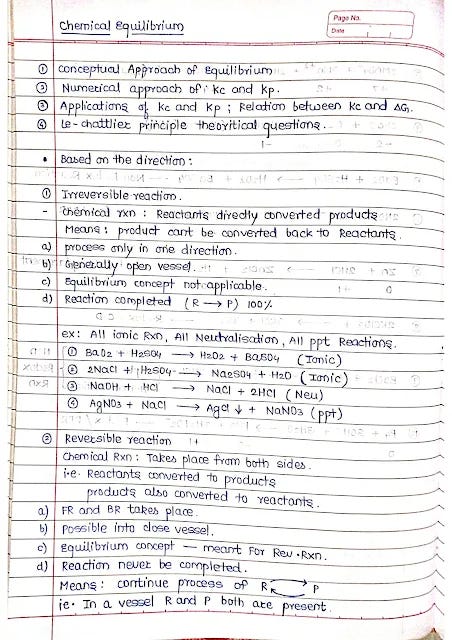 Chemical Equilibrium
Page No.
Date
① conceptual Approach of Equilibrium
② Numerical approach of: Kc and Kp.
③ Applications of Kc and Kp ; Relation between Kc and ΔG.
④ Le-chattlier principle theoritical questions.
• Based on the direction:
① Irreversible reaction.
- chemical rxn : Reactants directly converted products
Means: product can't be converted back to Reactants.
a) process only in one direction.
b) Generally open vessel.
c) Equilibrium concept not applicable.
d) Reaction completed (R → P) 100%
ex: All ionic Rxn, All Neutralisation, All ppt Reactions.
① BaO2 + H2SO4 → H2O2 + BaSO4 (Ionic)
② 2NaCl + H2SO4 → Na2SO4 + H2O (Ionic)
③ NaOH + HCl → NaCl + 2HCl (Neu)
④ AgNO3 + NaCl → AgCl ↓ + NaNO3 (ppt)
② Reversible reaction
Chemical Rxn: Takes place from both sides.
i.e. Reactants converted to products
products also converted to reactants.
a) FR and BR takes place.
b) possible into close vessel.
c) Equilibrium concept — meant For Rev. Rxn.
d) Reaction never be completed.
Means: continue process of R ⇌ P
ie. In a vessel R and P both are present.